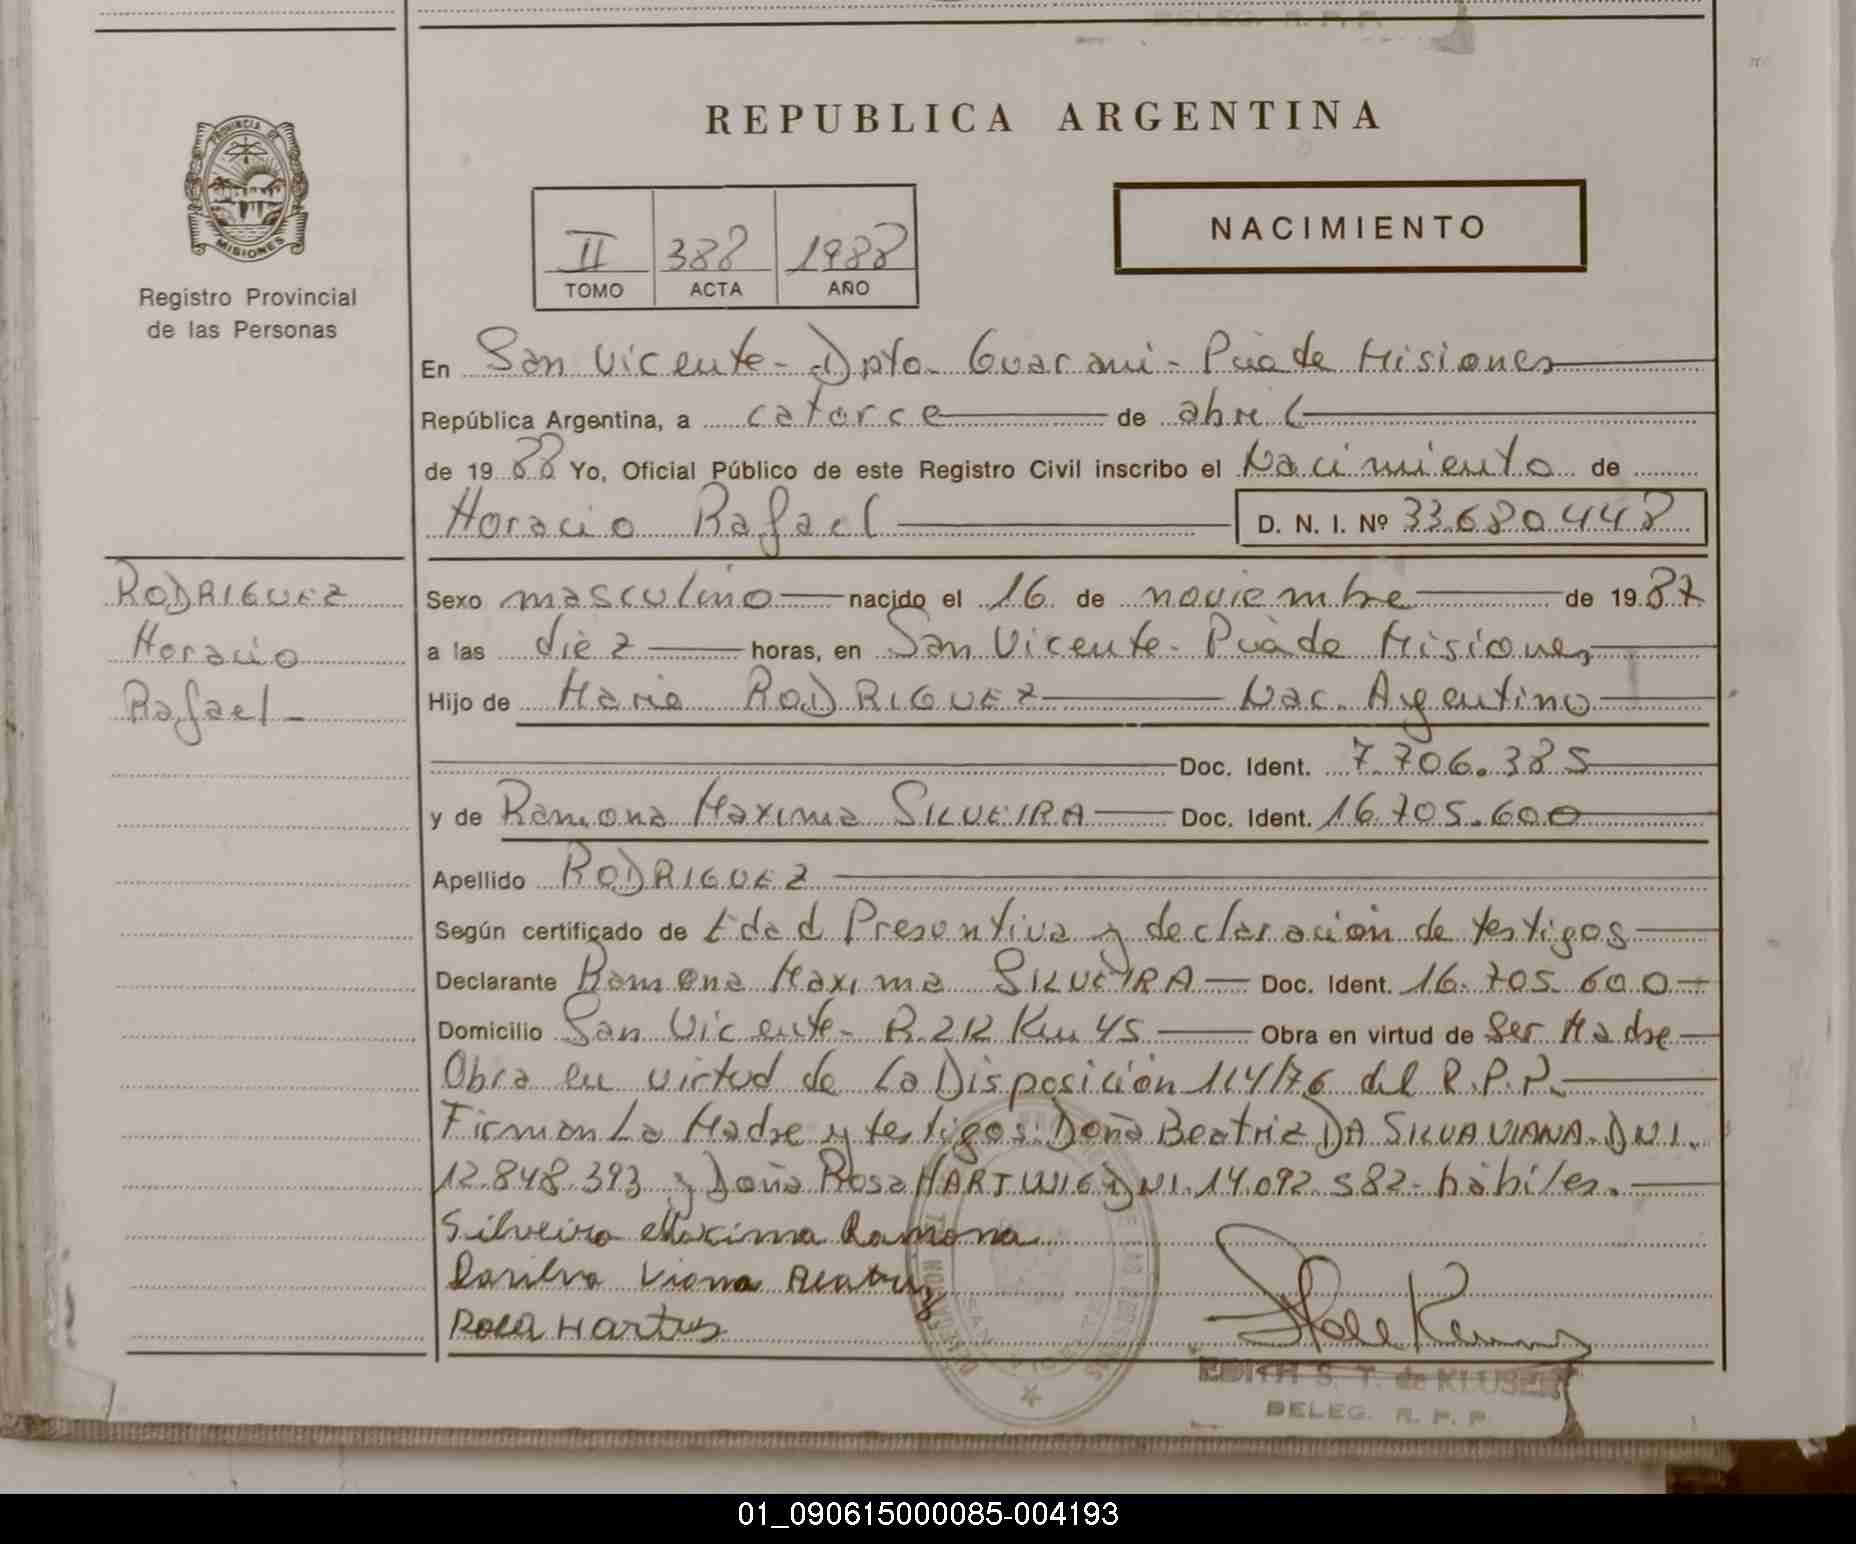 DELEG. R. P. P.
REPUBLICA ARGENTINA
PROVINCIA DE
MISIONES
NACIMIENTO
II 388 1988
TOMO ACTA AÑO
Registro Provincial
de las Personas
En San Vicente - Dpto. Guarani - Pcia de Misiones
República Argentina, a catorce de abril
de 1988 Yo, Oficial Público de este Registro Civil inscribo el Nacimiento de
Horacio Rafael D. N. I. Nº 33.680.448
RODRIGUEZ
Horacio
Rafael -
Sexo masculino nacido el 16 de noviembre de 1987
a las diez horas, en San Vicente - Pcia de Misiones
Hijo de Mario RODRIGUEZ Nac. Argentino
Doc. Ident. 7.706.385
y de Ramona Maxima SILVEIRA Doc. Ident. 16.705.600
Apellido RODRIGUEZ
Según certificado de Edad Presuntiva y declaración de testigos
Declarante Ramona Maxima SILVEIRA Doc. Ident. 16.705.600
Domicilio San Vicente - R.212 Km 45 Obra en virtud de Ser Madre
Obra en virtud de La Disposición 114/76 del R.P.P.
Firman La Madre y testigos: Doña Beatriz DA SILVA VIANA. DNI.
12.848.393 y Doña Rosa HARTWIG DNI. 14.092.582 - hábiles.
Silveira Maxima Ramona
Dasilva Viana Beatriz
Rosa Hartus
EDITH S. T. de KLUSER
DELEG. R. P. P.
01_090615000085-004193